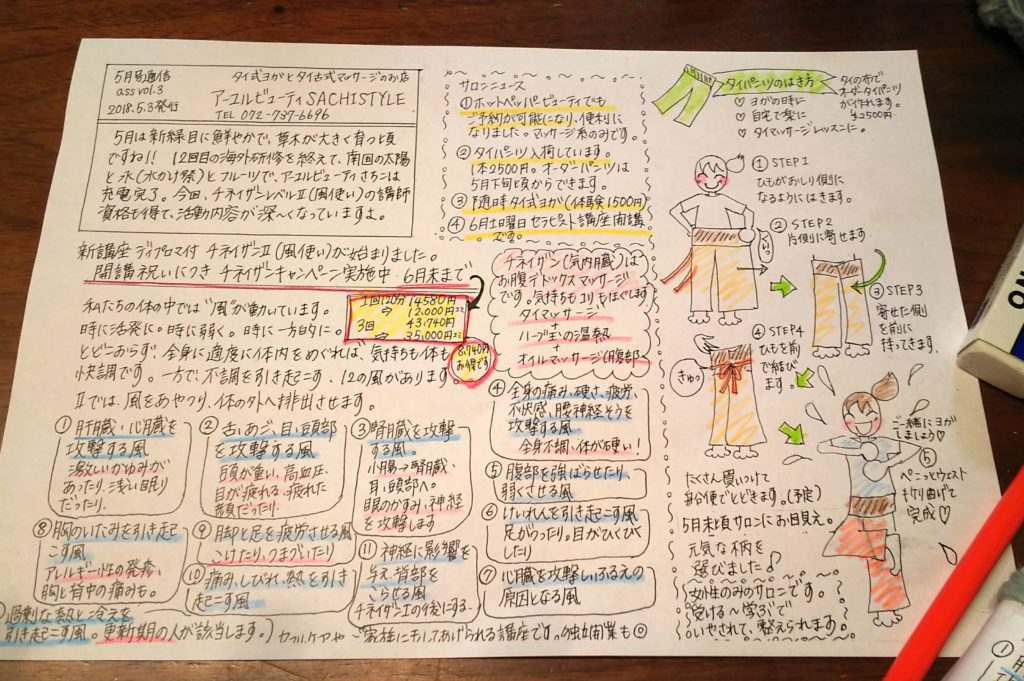 5月号通信
ass vol.3
2018.5.3発行
タイ式ヨガとタイ古式マッサージのお店
アーユルビューティ SACHISTYLE
TEL 072-737-6696
5月は新緑目に鮮やかで、草木が大きく育つ頃
ですね!! 12回目の海外研修を終えて、南国の太陽
と水(水かけ祭)とフルーツで、アーユルビューティさちこは
充電完了。今回、チネイザンレベルⅡ(風使い)の講師
資格も得て、活動内容が深〜くなっていますよ。
新講座 ディプロマ付 チネイザンⅡ(風使い)が始まりました。
開講祝いにつき チネイザンキャンペーン実施中 6月末まで
私たちの体の中では"風"が動いています。
時に活発に。時に弱く。時に一方的に。
とどこおらず、全身に適度に体内をめぐれば、気持ちも体も
快調です。一方で、不調を引き起こす、12の風があります。
Ⅱでは、風をあやつり、体の外へ排出させます。
1回120分 14580円
⇨ 12,000円
3回 43,740円
⇨ 35,000円
8,740円
お得です
① 肝臓・心臓を
攻撃する風
激しいかゆみが
あったり、浅い眠り
だったり。
② 舌、あご、目、頭部
を攻撃する風
頭が重い、高血圧、
目が疲れる、疲れた
顔だったり。
③ 腎臓を攻撃
する風。
小腸→腎臓、
耳、頭部へ。
眼のかすみ、神経
を攻撃します
④ 全身の痛み、硬さ、疲労、
不快感、腰神経そうを
攻撃する風
全身不調、体が硬い!
⑤ 腹部を強ばらせたり、
弱くさせる風
⑥ けいれんを引き起こす風
足がつったり。目がひくひく
したり
⑦ 心臓を攻撃し、ふるえの
原因となる風
⑧ 胸のいたみを引き起
こす風
アレルギー性の発疹、
胸と背中の痛みも。
⑨ 脚と足を疲労させる風
こけたり、つまづいたり
⑩ 痛み、しびれ、熱を引き
起こす風
⑪ 神経に影響を
与え、背部を
こらじる風
チネイザンⅠの後にする。
過剰な熱と冷えを
引き起こす風。更新期の人が該当します。
セルフケアや ご家族にもしてあげられる講座です。独立開業も◎
サロンニュース
① ホットペッパービューティでも
ご予約が可能になり、便利に
なりました。マッサージ系のみです。
② タイパンツ入荷しています。
1本2500円。オーダーパンツは
5月下旬頃からできます。
③ 随時タイ式ヨガ(体験1500円)
④ 6月土曜日セラピスト講座開講
です。
チネイザン(気内臓)は
お腹デトックスマッサージ
です。気持ちもコリもほぐします
タイマッサージ
+
ハーブ玉の温熱
+
オイルマッサージ(腹部)
タイパンツのはき方
♡ ヨガの時に
♡ 自宅で楽に
♡ タイマッサージレッスンに。
タイの布で
オーダータイパンツ
が作れます。
¥2500円
① STEP1
ひもがおしり側に
なるようにはきます。
② STEP2
片側に寄せます。
③ STEP3
寄せた側
を前に
持ってきます。
④ STEP4
ひもを前
で結び
ます。
きゅっ
ご一緒にヨガ
しましょう♡
⑤
ぺこっとウエスト
を折り曲げて
完成♡
たくさん買いつけて
船便でとどきます。(予定)
5月末頃サロンにお目見え。
元気な柄を
選びました♪
女性のみのサロンです。
受ける〜学ぶで
いやされて、整えられます。